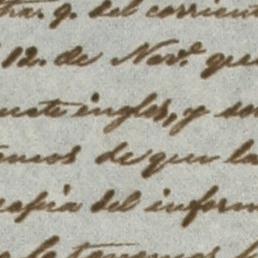 tra. 9. del corriente
12. de Nov.e que
uete ingles, y so
emos de que la
rafia del inform